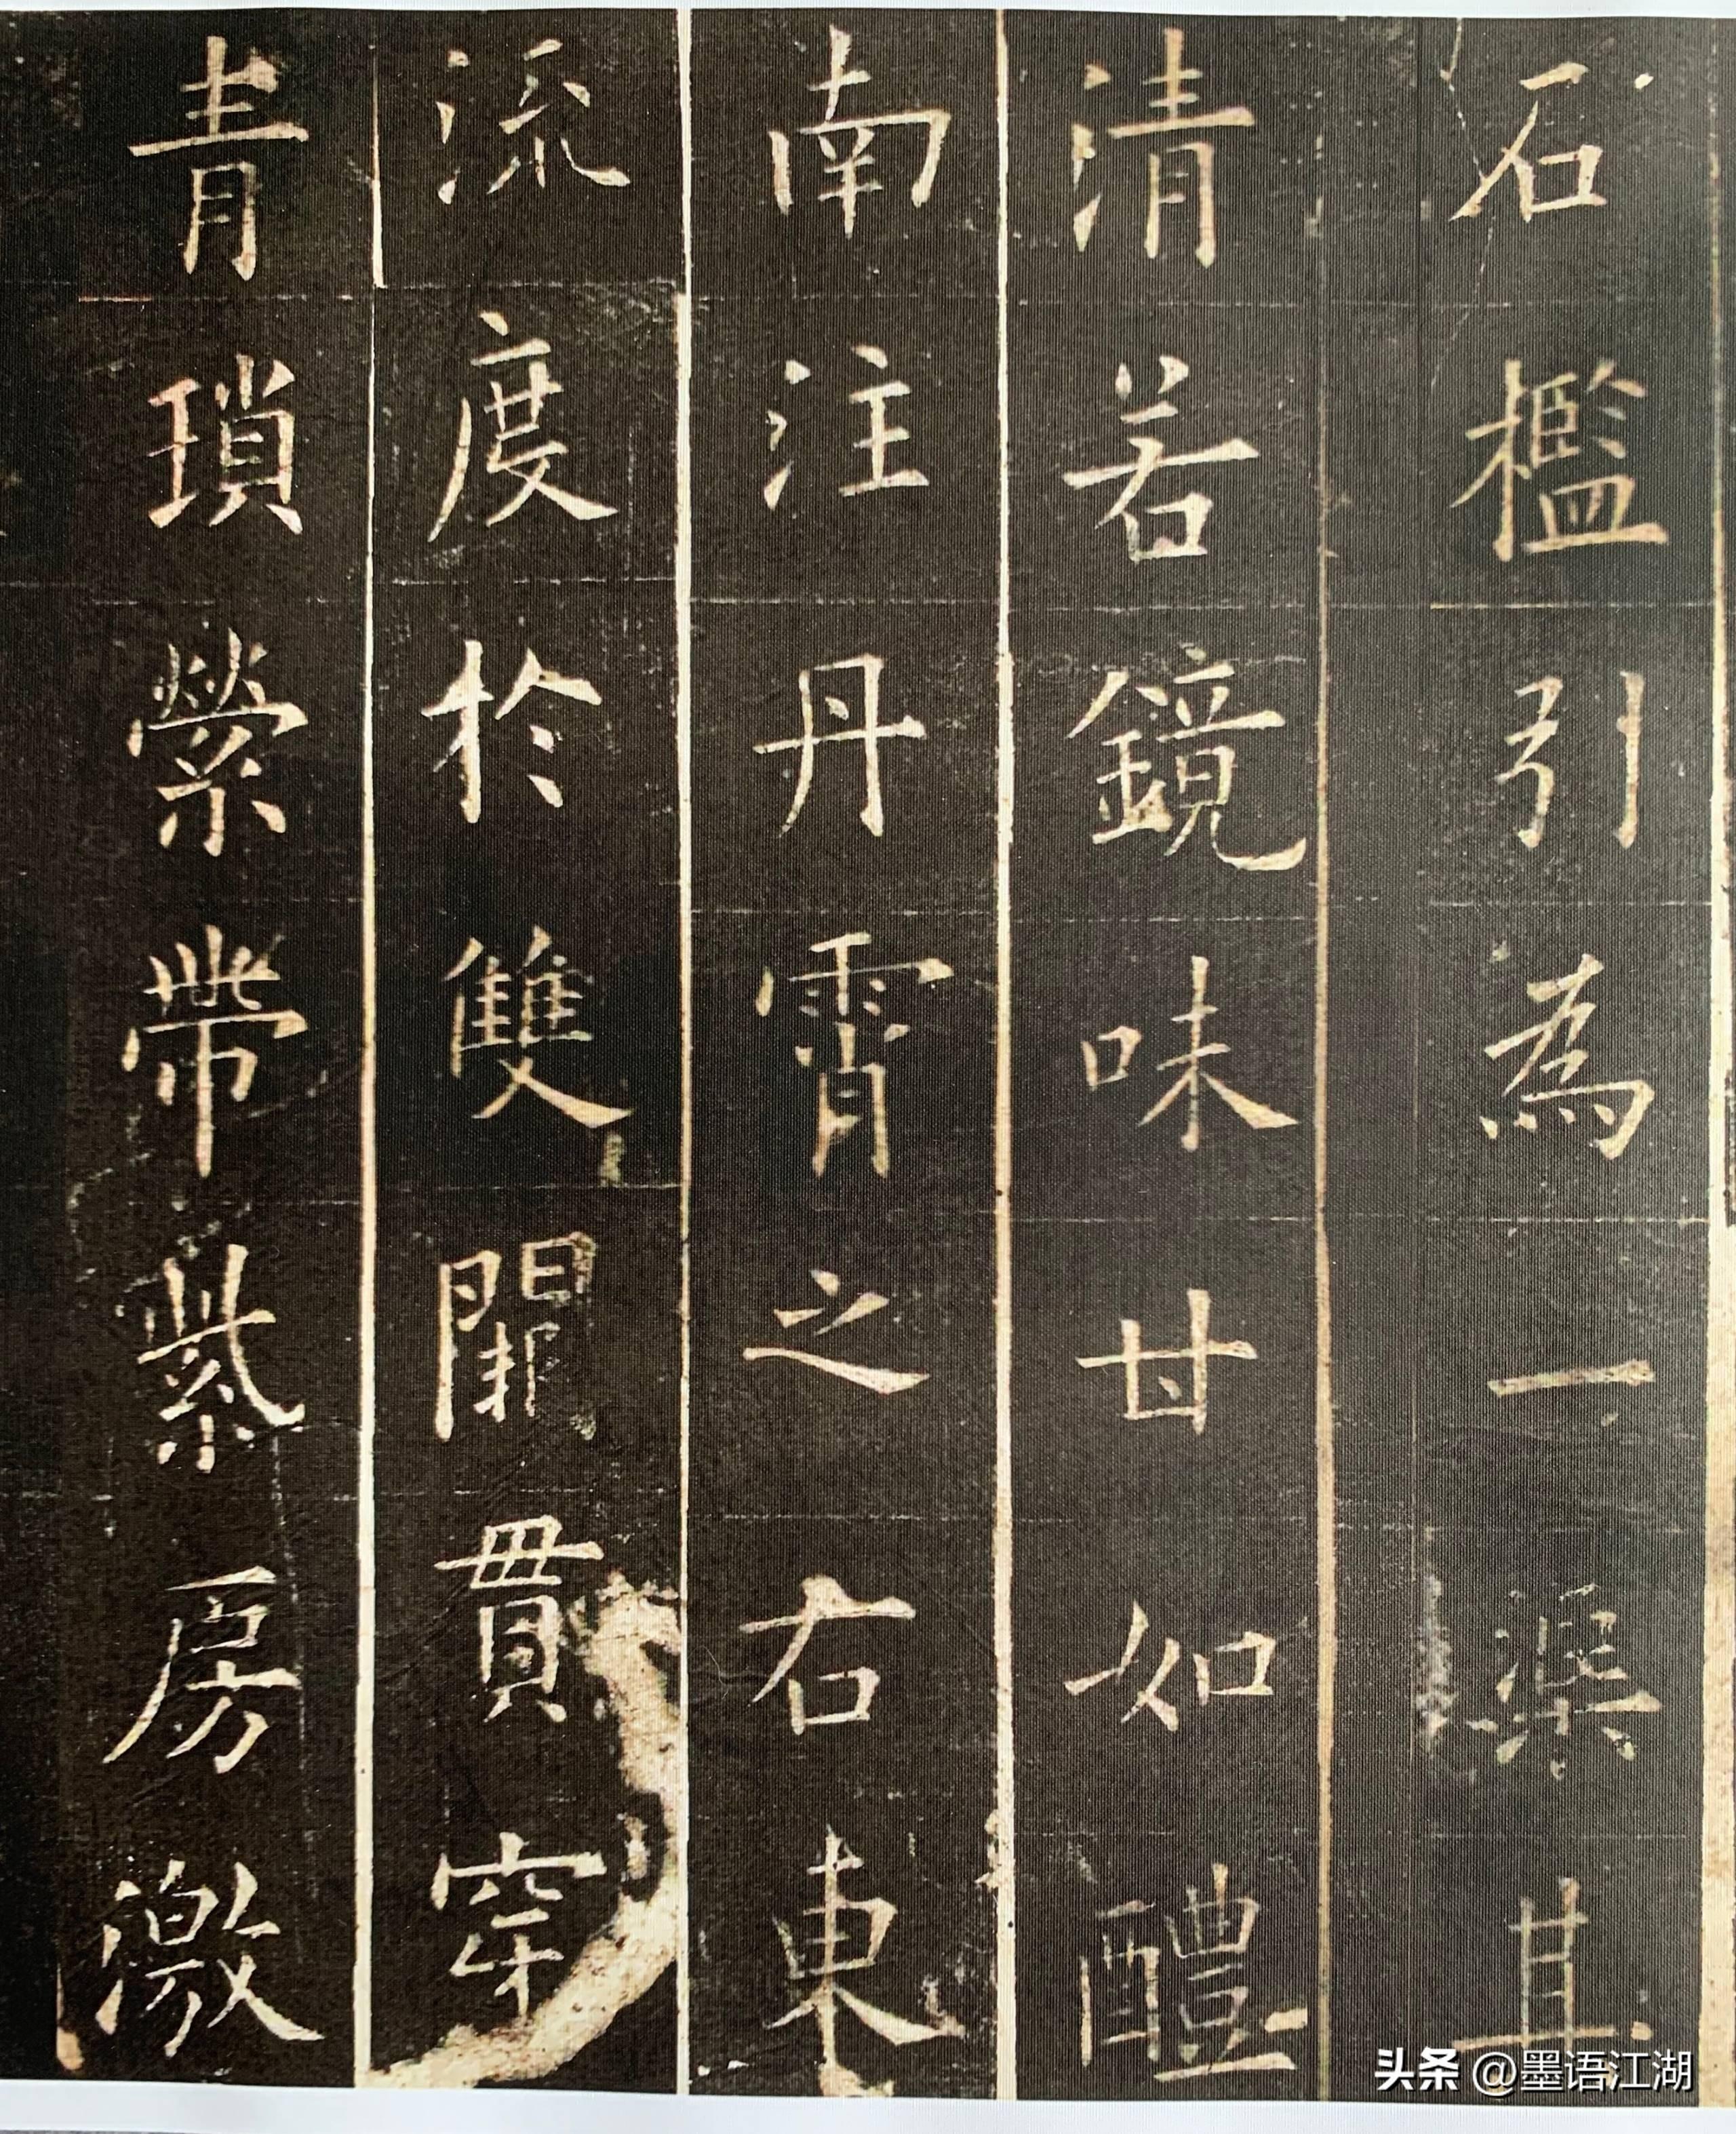 石檻引為一渠其
清若鏡味甘如醴
南注丹霄之右東
流度於雙闕貫穿
青瑣縈帶紫房激
头条 @墨语江湖